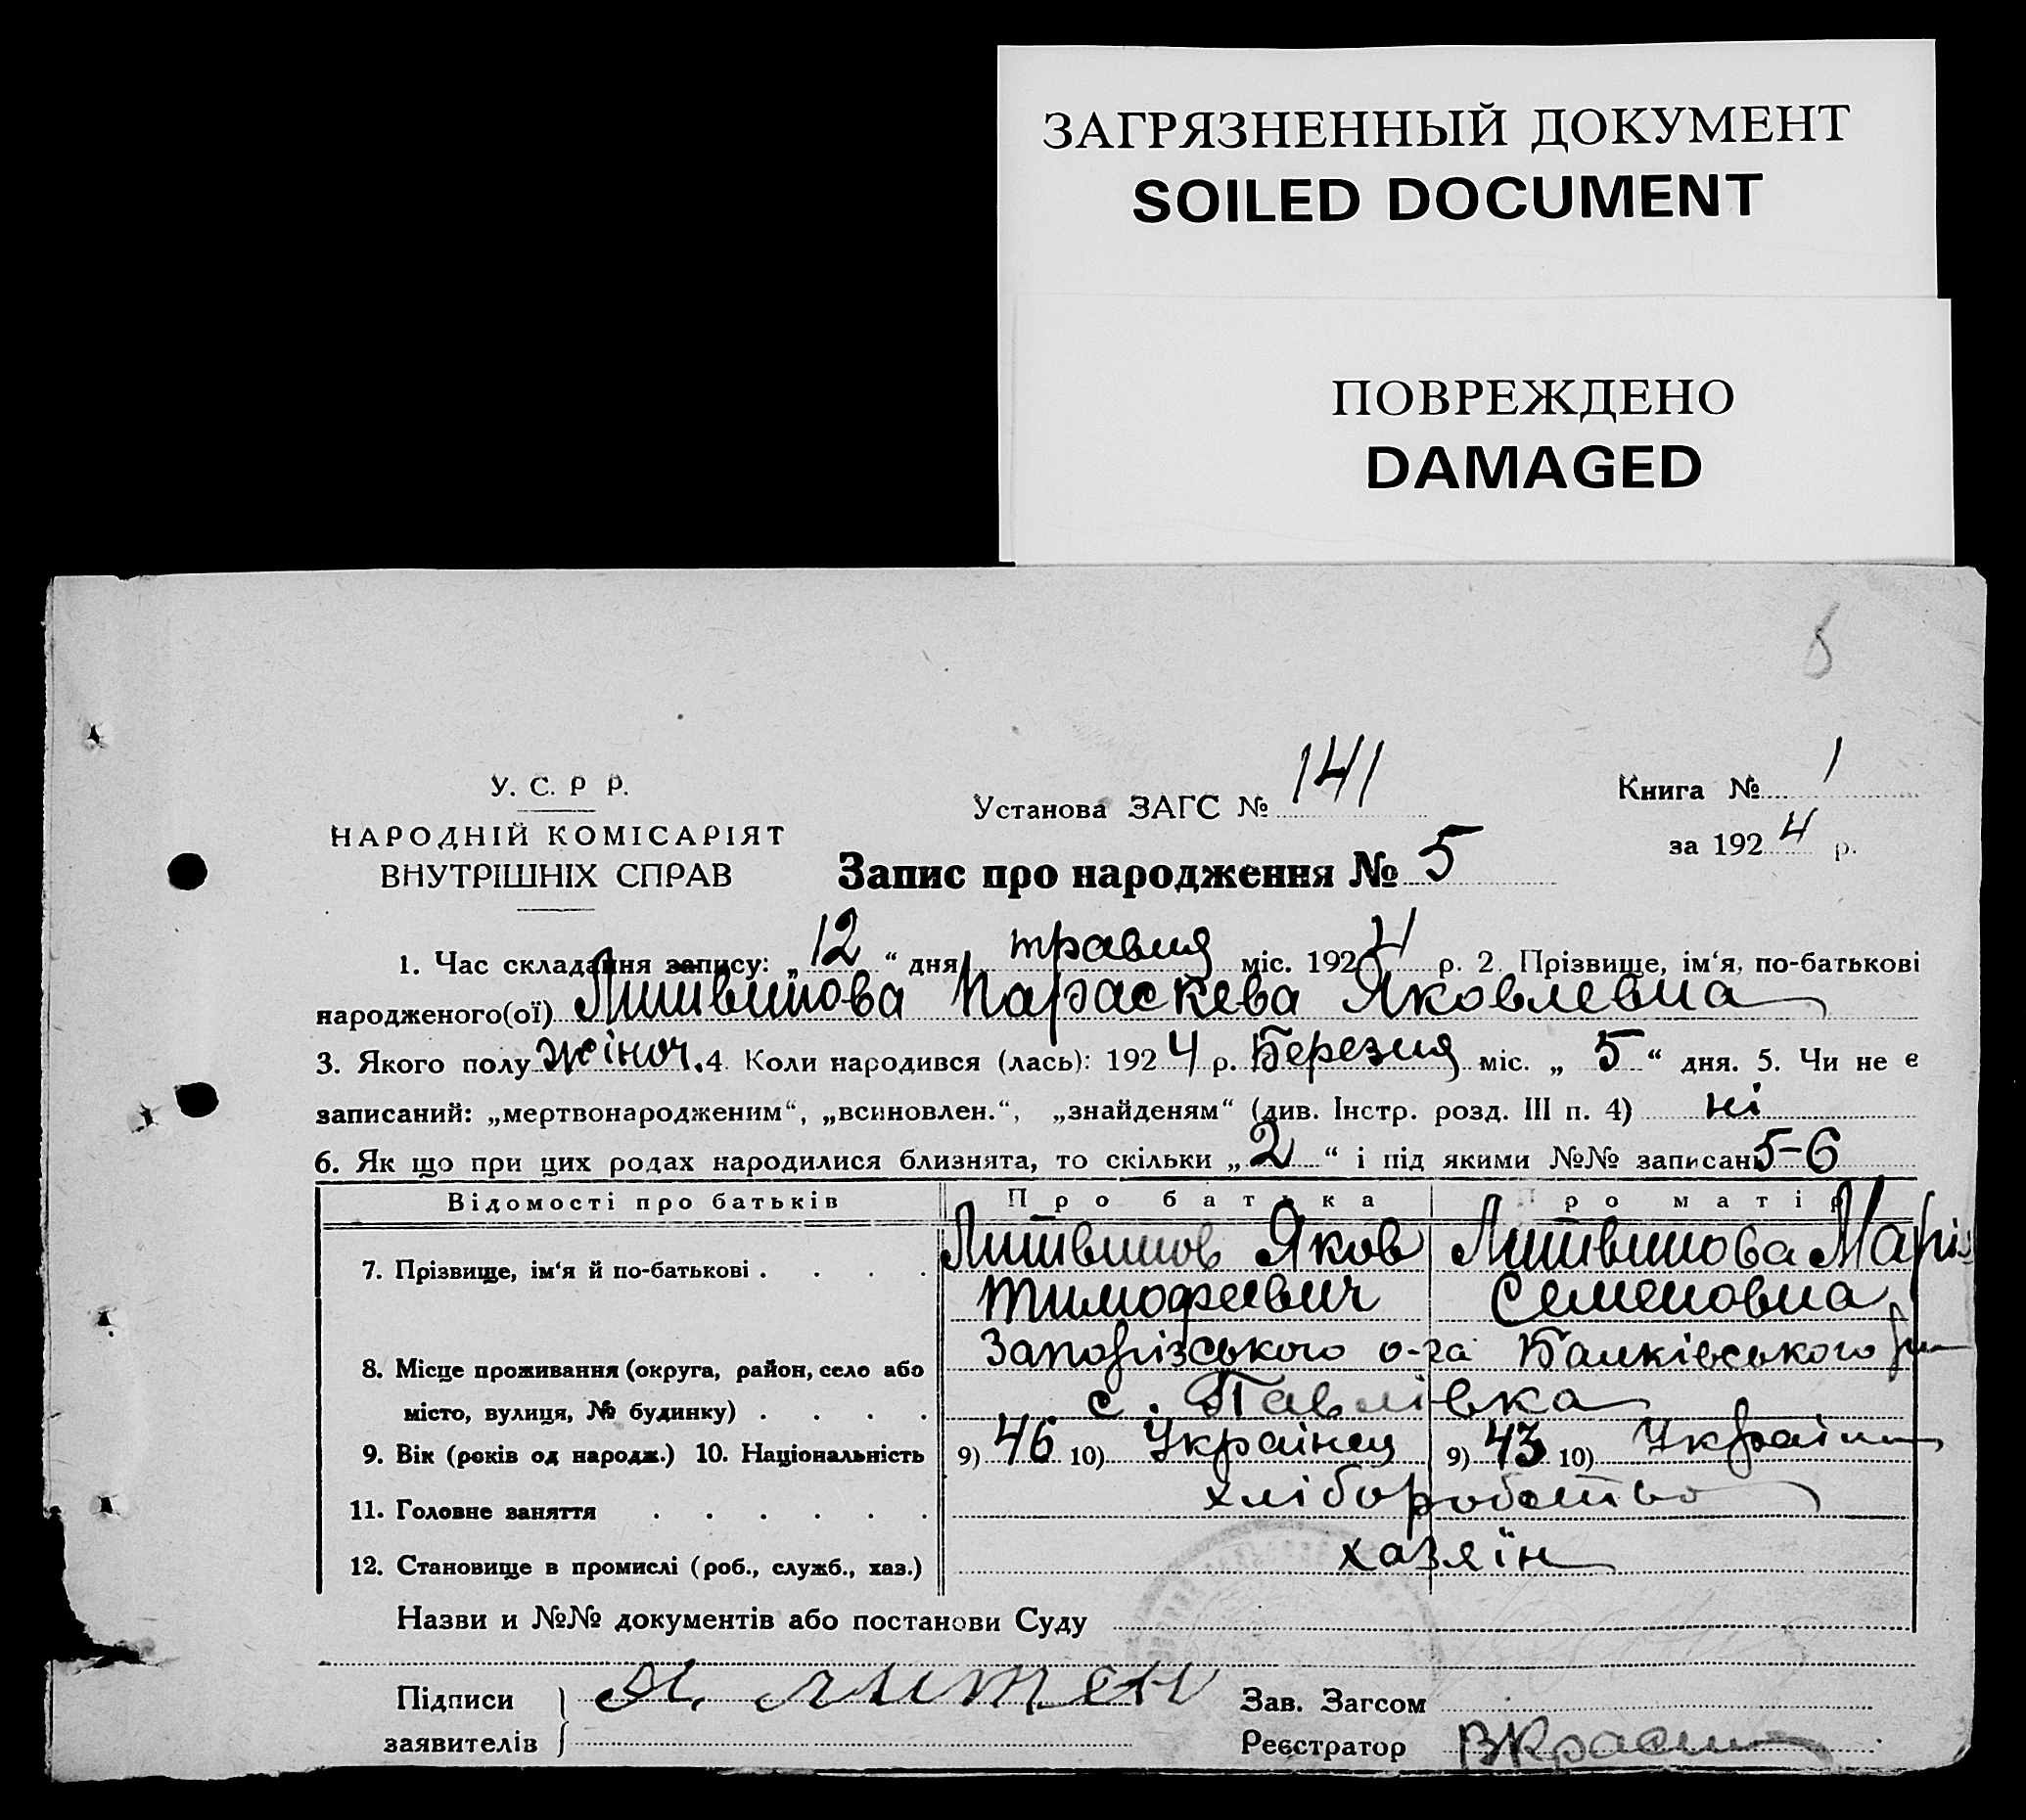 ЗАГРЯЗНЕННЫЙ ДОКУМЕНТ
SOILED DOCUMENT
ПОВРЕЖДЕНО
DAMAGED
У. С. Р Р.
НАРОДНІЙ КОМІСАРІЯТ
ВНУТРІШНІХ СПРАВ
Установа ЗАГС № 141
Книга № 1
за 1924 р.
Запис про народження № 5
1. Час складання запису: „12“ дня травня міс. 1924 р. 2. Прізвище, ім'я, по-батькові
народженого(ої) Литвинова Параскева Яковлевна
3. Якого полу жіноч. 4. Коли народився (лась): 1924 р. Березня міс. „5“ дня. 5. Чи не є
записаний: „мертвонародженим“, „всиновлен.“, „знайденям“ (див. Інстр. розд. III п. 4) ні
6. Як що при цих родах народилися близнята, то скільки „2“ і під якими №№ записані 5-6
Відомості про батьків Про батька Про матір
7. Прізвище, ім'я й по-батькові . . . . Литвинов Яков Литвинова Марія
Тимофеевич Семеновна
8. Місце проживання (округа, район, село або Запорізського о-га
місто, вулиця, № будинку) . . . . с. Павлівка
9. Вік (років од народж.) 10. Національність 9) 46 10) Українец 9) 43 10)
11. Головне заняття . . . . . . хліборобство
12. Становище в промислі (роб., служб., хаз.) хазяїн
Назви и №№ документів або постанови Суду
Підписи
заявителів
Зав. Загсом
Реєстратор